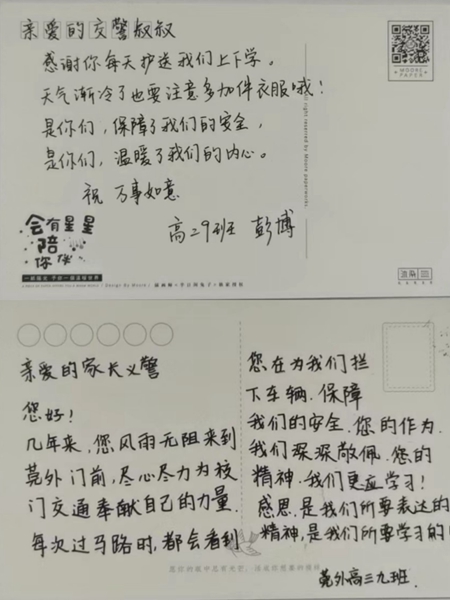 亲爱的交警叔叔
感谢你每天护送我们上下学。
天气渐冷了也要注意多加件衣服哦！
是你们，保障了我们的安全，
是你们，温暖了我们的内心。
祝 万事如意
高二9班 彭博
MOORE
PAPER
会有星星
陪
你
亲爱的家长义警
您好！
几年来，您风雨无阻来到
莞外门前，尽心尽力为校
门交通奉献自己的力量.
每次过马路时，都会看到
您在为我们拦
下车辆.保障
我们的安全.您的作为.
我们深深敬佩.您的
精神.我们更应学习！
感恩.是我们所要表达的
精神，是我们所要学习的
莞外高三九班.